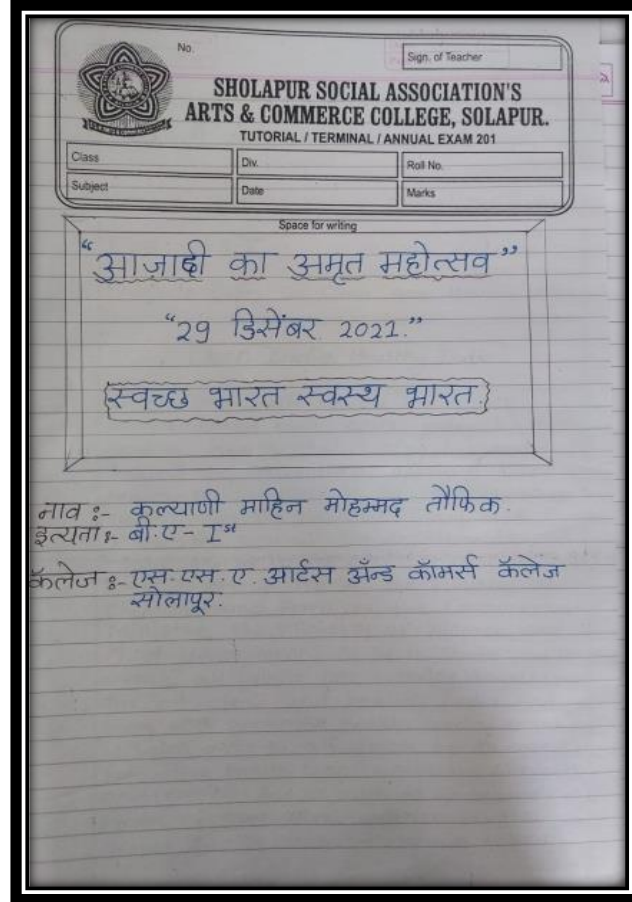 No.
Sign. of Teacher
SHOLAPUR SOCIAL ASSOCIATION'S
ARTS & COMMERCE COLLEGE, SOLAPUR.
TUTORIAL / TERMINAL / ANNUAL EXAM 201
Class Div. Roll No.
Subject Date Marks
Space for writing
“आज़ादी का अमृत महोत्सव”
“29 डिसेंबर 2021.”
स्वच्छ भारत स्वस्थ भारत.
नाव :- कल्याणी माहिन मोहम्मद तौफिक.
इत्यता :- बी.ए - Ist
कॅलेज :- एस.एस.ए. आर्टस अँन्ड कॉमर्स कॅलेज
सोलापूर.